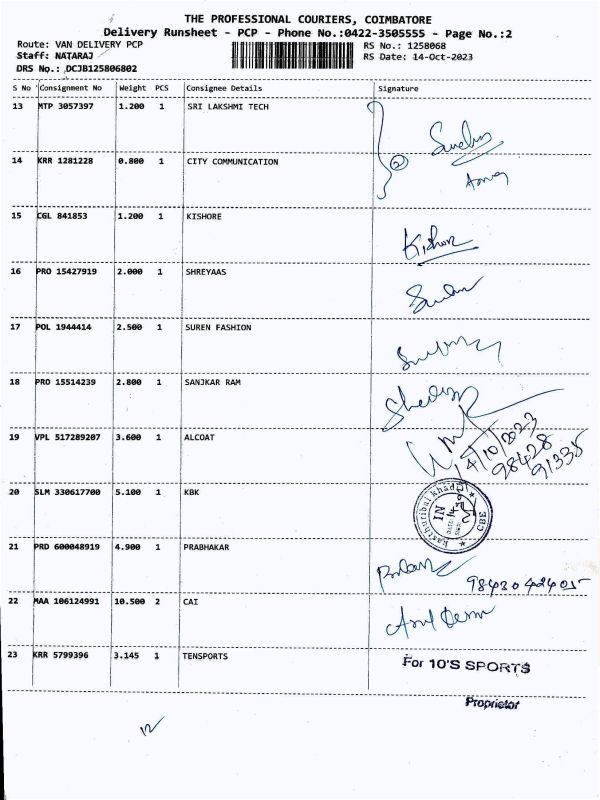 THE PROFESSIONAL COURIERS, COIMBATORE
Delivery Runsheet - PCP - Phone No.:0422-3505555 - Page No.:2
Route: VAN DELIVERY PCP RS No.: 1258068
Staff: NATARAJ RS Date: 14-Oct-2023
DRS No.: DCJB125806802
S No Consignment No Weight PCS Consignee Details Signature
13 MTP 3057397 1.200 1 SRI LAKSHMI TECH
14 KRR 1281228 0.800 1 CITY COMMUNICATION 2
15 CGL 841853 1.200 1 KISHORE Kishor
16 PRO 15427919 2.000 1 SHREYAAS
17 POL 1944414 2.500 1 SUREN FASHION
18 PRO 15514239 2.800 1 SANJKAR RAM
19 VPL 517289207 3.600 1 ALCOAT 14/10/2023
98428
91335
20 SLM 330617700 5.100 1 KBK IN CBE
21 PRD 600048919 4.900 1 PRABHAKAR 9843042405
22 MAA 106124991 10.500 2 CAI
23 KRR 5799396 3.145 1 TENSPORTS For 10'S SPORTS
Proprietor
12